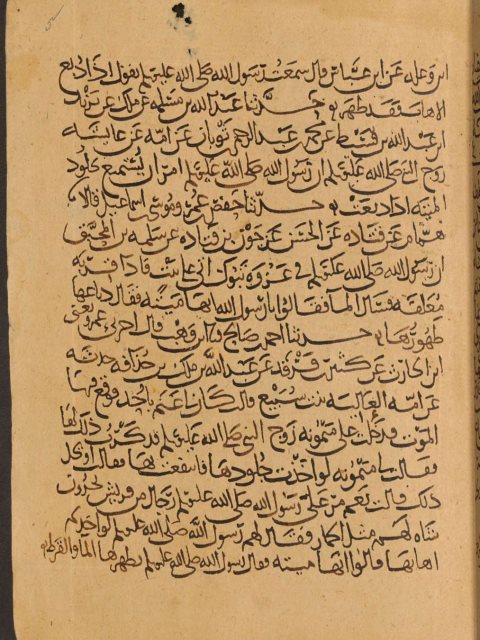 ابن وعلة عن ابن عباس قال سمعت رسول الله صلى الله عليه وسلم يقول اذا دبغ
الاهاب فقد طهر حدثنا عبد الله بن مسلمة عن ملك عن يزيد
ابن عبد الله بن قسيط عن محمد بن عبد الرحمن بن ثوبان عن امه عن عايشة
زوج النبي صلى الله عليه وسلم ان رسول الله صلى الله عليه وسلم امر ان يستمتع بجلود
الميتة اذا دبغت حدثنا حفص بن عمر وموسى بن اسماعيل قالا
همام عن قتادة عن الحسن عن جون بن قتادة عن سلمة بن المحبق
ان رسول الله صلى الله عليه وسلم في غزوة تبوك اتى على بيت فاذا قربة
معلقة فسال الما فقالوا يا رسول الله انها ميتة فقال دباغها
طهورها حدثنا احمد بن صالح ابن وهب قال اخبرني عمرو يعني
ابن الحارث عن كثير بن فرقد عن عبد الله بن ملك بن حذافة حدثه
عن امه العالية بنت سبيع قالت كان لي غنم باحد فوقع فيها
الموت فدخلت على ميمونة زوج النبي صلى الله عليه وسلم فذكرت ذلك لها
فقالت ميمونة لو اخذت جلودها فانتفعت بها فقالت اويحل
ذلك قالت نعم مر على رسول الله صلى الله عليه وسلم رجال من قريش يجرون
شاة لهم مثل الحمار فقال لهم رسول الله صلى الله عليه وسلم لو اخذتم
اهابها قالوا انها ميتة فقال رسول الله صلى الله عليه وسلم يطهرها الما والقرظ